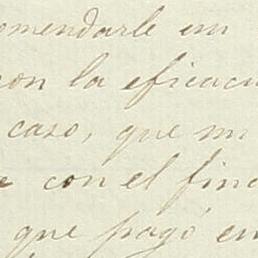 omendarle un
con la eficaci
caso, que mi
e con el fin
que pagó en